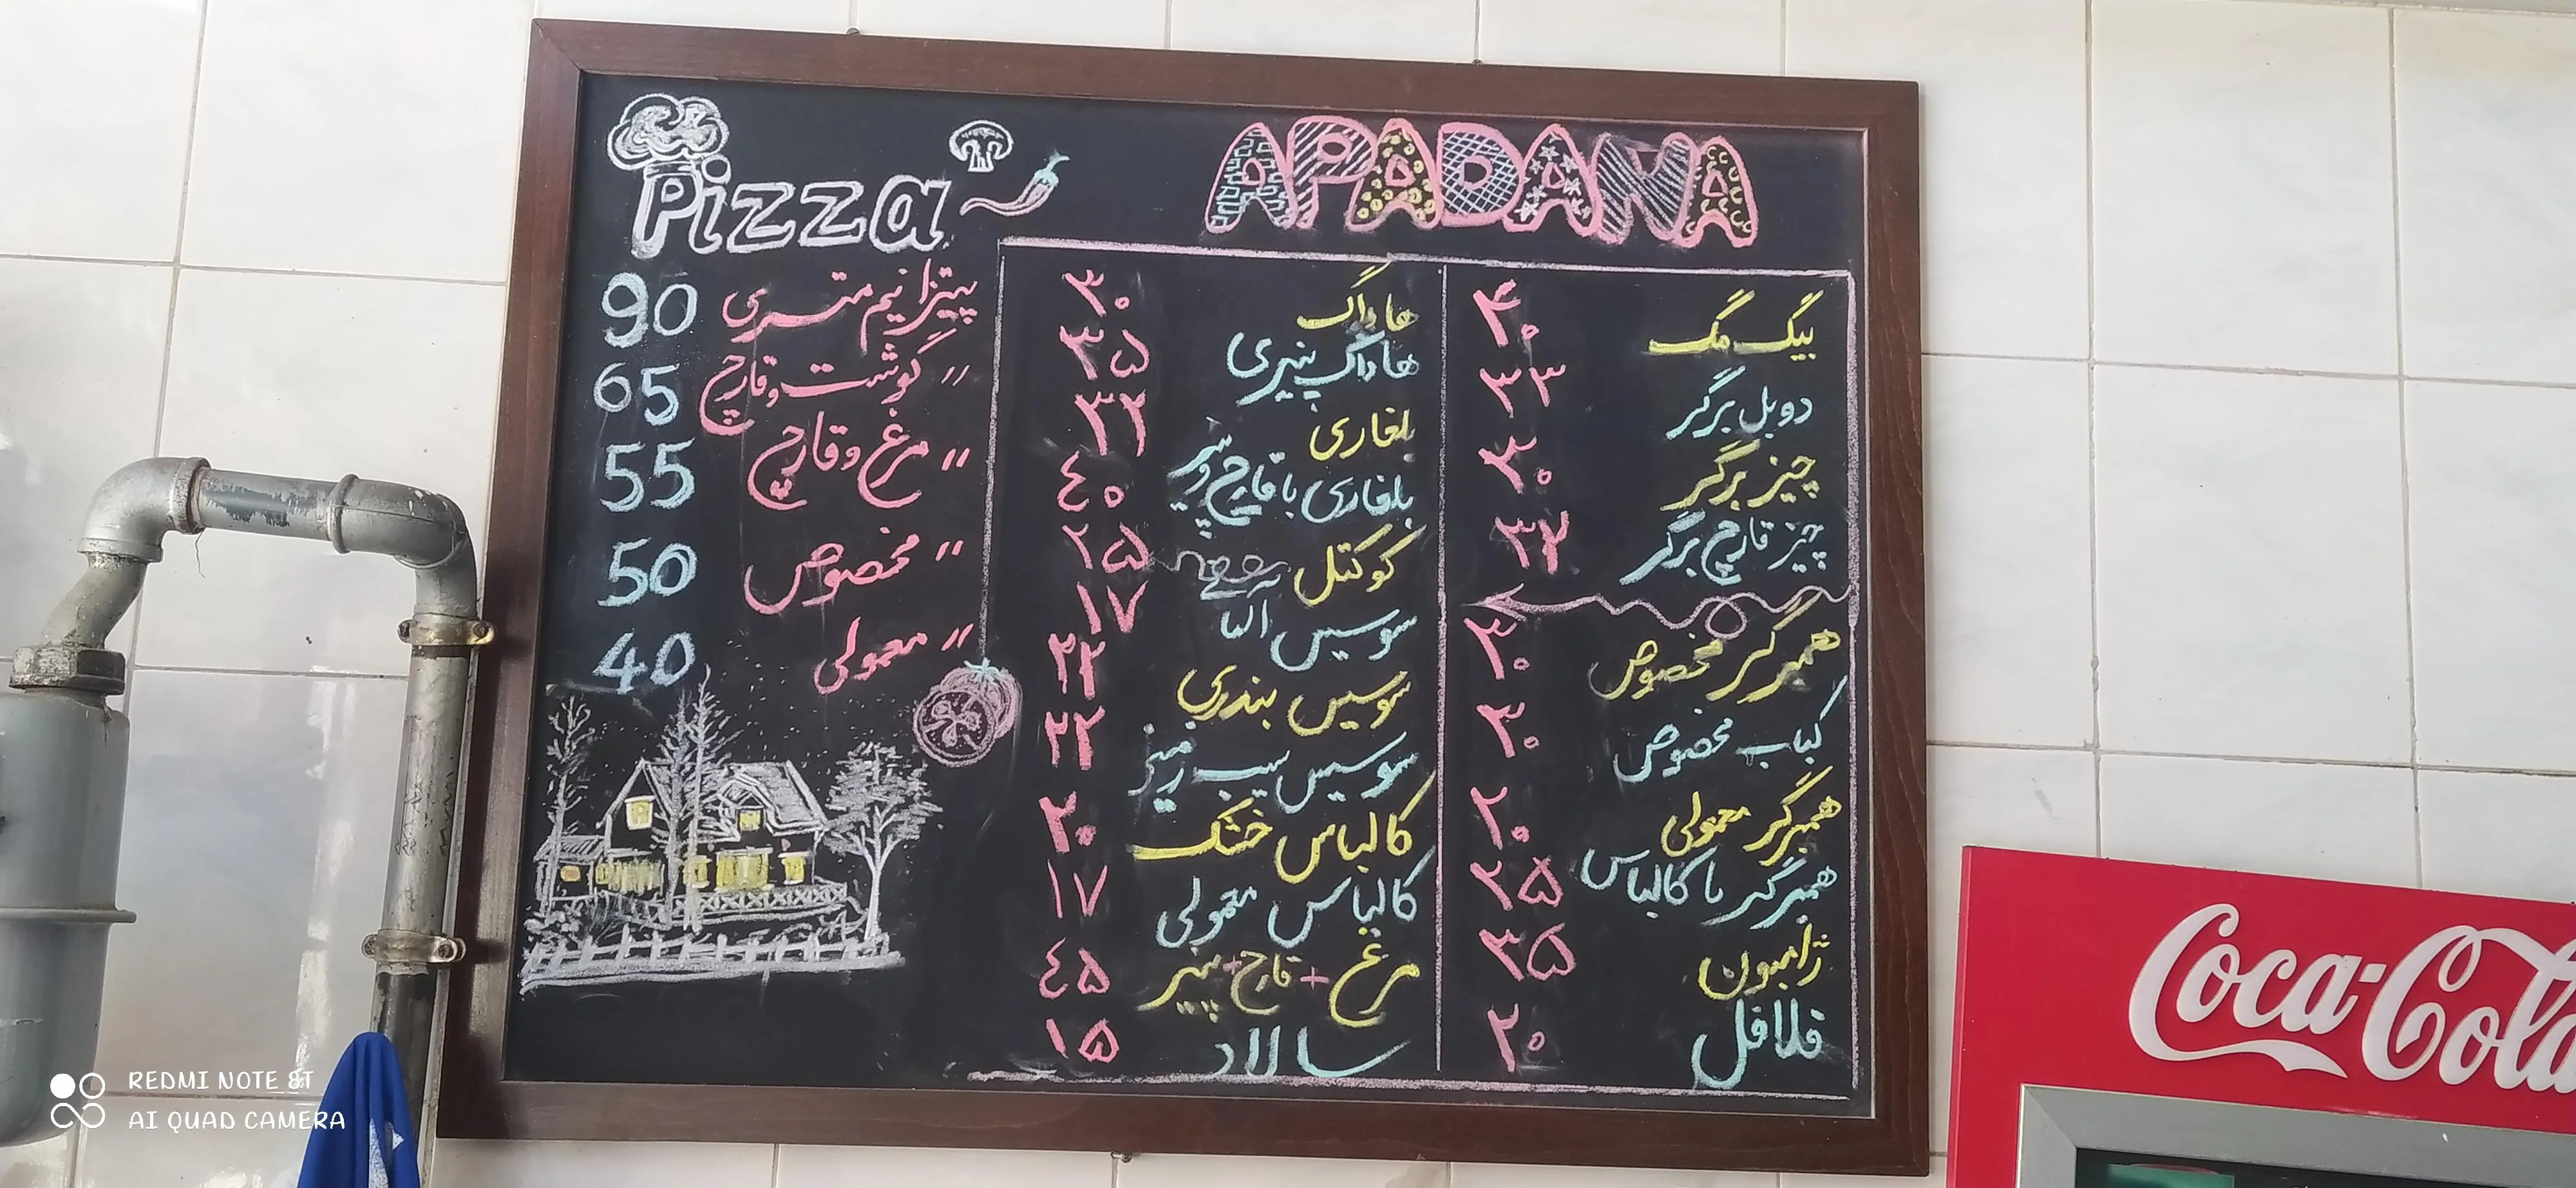 APADANA
بیگ مگ ۴۰
دوبل برگر ۳۳
چیز برگر ۳۰
چیز قارچ برگر ۳۳
همبرگر مخصوص ۳۰
کباب مخصوص ۳۰
همبرگر معمولی ۲۰
همبرگر با کالباس ۲۵
ژامبون ۳۵
فلافل ۲۰
هاداگ ۳۰
هاداگ پنیری ۳۵
بلغاری ۳۲
بلغاری با قارچ و پنیر ٤۰
کوکتل ۲۵
سوسیس آلما ۱۷
سوسیس بندری ۲۲
سوسیس سیب زمینی ۲۲
کالباس خشک ۲۰
کالباس معمولی ۱۷
مرغ + قارچ + پنیر ٤۵
سالاد ۱۵
Pizza
پیتزا نیم متری 90
〃 گوشت و قارچ 65
〃 مرغ و قارچ 55
〃 مخصوص 50
〃 معمولی 40
Coca-Cola
REDMI NOTE 8T
AI QUAD CAMERA